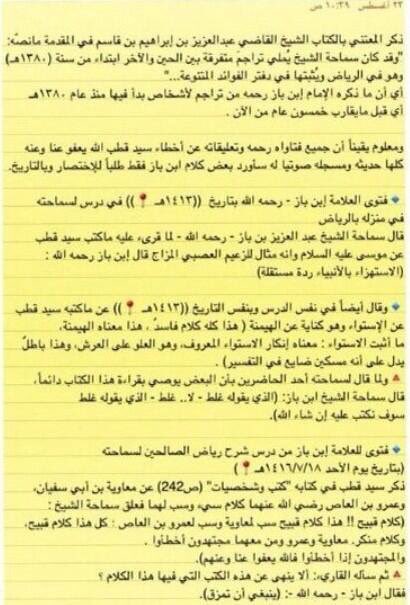 ٢٣ أغسطس ١٠:٣٩ ص
ذكر المعتني بالكتاب الشيخ القاضي عبدالعزيز بن إبراهيم بن قاسم في المقدمة مانصه:
"وقد كان سماحة الشيخ يُملي تراجم متفرقة بين الحين والآخر ابتداء من سنة (١٣٨٠هـ)
وهو في الرياض ويُثبتها في دفتر الفوائد المتنوعة..."
أي أن ما ذكره الإمام إبن باز رحمه من تراجم لأشخاص بدأ فيها منذ عام ١٣٨٠هـ
أي قبل مايقارب خمسون عام من الآن .
ومعلوم يقيناً أن جميع فتاواه رحمه وتعليقاته عن أخطاء سيد قطب الله يعفو عنا وعنه
كلها حديثه ومسجله صوتيا له سأورد بعض كلام ابن باز فقط طلباً للإختصار وبالتاريخ.
🔹 فتوى العلامة إبن باز - رحمه الله بتاريخ ((١٤١٣هـ 📍)) في درس لسماحته
في منزله بالرياض
قال سماحة الشيخ عبد العزيز بن باز - رحمه الله - لما قرىء عليه ماكتب سيد قطب
عن موسى عليه السلام وانه مثال للزعيم العصبي المزاج قال إبن باز رحمه الله :
(الاستهزاء بالأنبياء ردة مستقلة)
🔹 وقال أيضاً في نفس الدرس وبنفس التاريخ ((١٤١٣هـ 📍)) عن ماكتبه سيد قطب
عن الإستواء وهو كناية عن الهيمنة ( هذا كله كلام فاسدٌ ، هذا معناه الهيمنة،
ما أثبت الاستواء : معناه إنكار الاستواء المعروف، وهو العلو على العرش، وهذا باطلٌ
يدل على أنه مسكين ضايع في التفسير) .
🔺 ولما قال لسماحته أحد الحاضرين بأن البعض يوصي بقراءة هذا الكتاب دائماً،
قال سماحة الشيخ ابن باز: (الذي يقوله غلط - لا.. غلط - الذي يقوله غلط
سوف نكتب عليه إن شاء الله).
🔹 فتوى للعلامة إبن باز من درس شرح رياض الصالحين لسماحته
(بتاريخ يوم الأحد ١٤١٦/٧/١٨هـ 📍)
ذكر سيد قطب في كتابه "كتب وشخصيات" (ص242) عن معاوية بن أبي سفيان،
وعمرو بن العاص رضي الله عنهما كلام سيء وسب لهما فعلق سماحة الشيخ :
(كلام قبيح !! هذا كلام قبيح سب لمعاوية وسب لعمرو بن العاص : كل هذا كلام قبيح،
وكلام منكر. معاوية وعمرو ومن معهما مجتهدون أخطأوا .
والمجتهدون إذا أخطأوا فالله يعفوا عنا وعنهم).
🔺 ثم سأله القاريء: ألا ينهى عن هذه الكتب التي فيها هذا الكلام ؟
فقال ابن باز - رحمه الله -: (ينبغي أن تمزق).